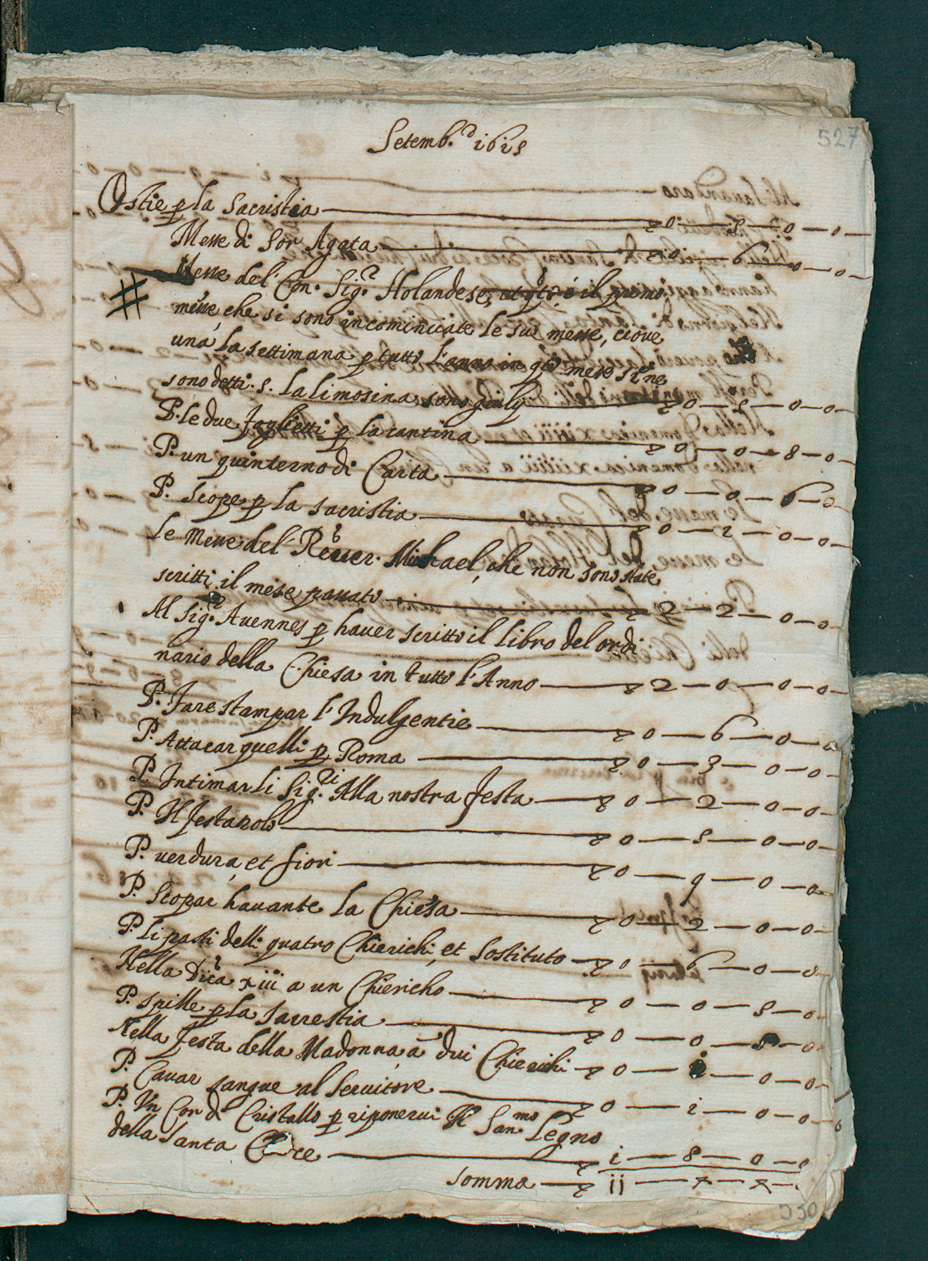 527
Setemb.º 1615
Ostie p la Sacristia — 0 — 0 — 0
Messe di Sor Agata — 6 — 0 — 0
# Messe del Con. Sigr. Holandese, il primo
mese che si sono incominciate le sue messe, cioue
una la settimana p tutto l'anno
sono detti 5. La limosina — 0 — 5 — 0 — 0
P. le due foglietti p la cantina — 0 — 0 — 8 — 0
P. un quinterno di Carta — 0 — 0 — 6 — 0
P. scope p la sacristia — 0 — 2 — 0 — 0
Le Messe del Reuer. Michael, che non sono state
scritti il mese passato — 2 — 2 — 0 — 0
Al Sigr. Auennes p hauer scritto il libro del ordi
nario della Chiesa in tutto l'Anno — 2 — 0 — 0 — 0
P. fare stampar l'Indulgentie — 0 — 6 — 0 — 0
P. Attacar quelli p Roma — 0 — 3 — 0 — 0
P. Intimar li Sigri. Alla nostra festa — 0 — 2 — 0 — 0
P. Il festarolo — 0 — 5 — 0 — 0
P. uerdura, et fiori — 0 — 9 — 0 — 0
P. Scopar hauante la Chiesa — 0 — 2 — 0 — 0
P. li pasti delli quatro Chierichi, et Sostituto — 0 — 6 — 0 — 0
Nella Dica xiii a un Chiericho — 0 — 0 — 5 — 0
P. spille p la Sacrestia — 0 — 0 — 5 — 0
Nella festa della Madonna a dui Chierichi — 0 — 0 — 0
P. Cauar sangue al Seruitore — 0 — 1 — 0 — 0
P. Un Con di Cristallo p riponerui Il San.mo Legno
della Santa Croce — 1 — 8 — 0 — 0
somma — 11
550